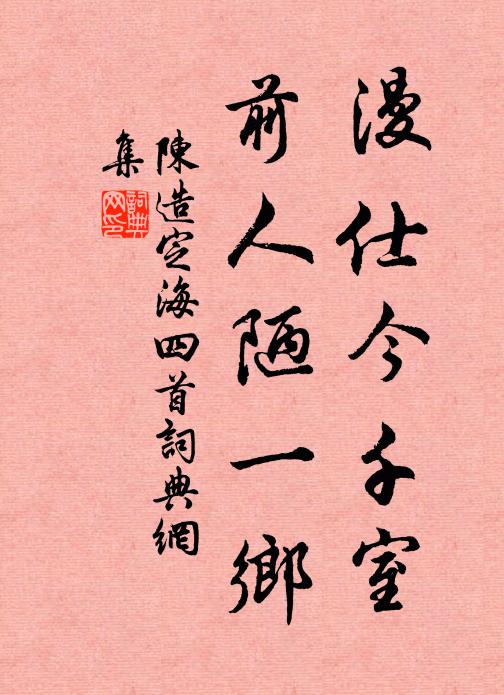 漫仕今千室
前人陋一鄉
陳造定海四首詞典網
集
詞典網印